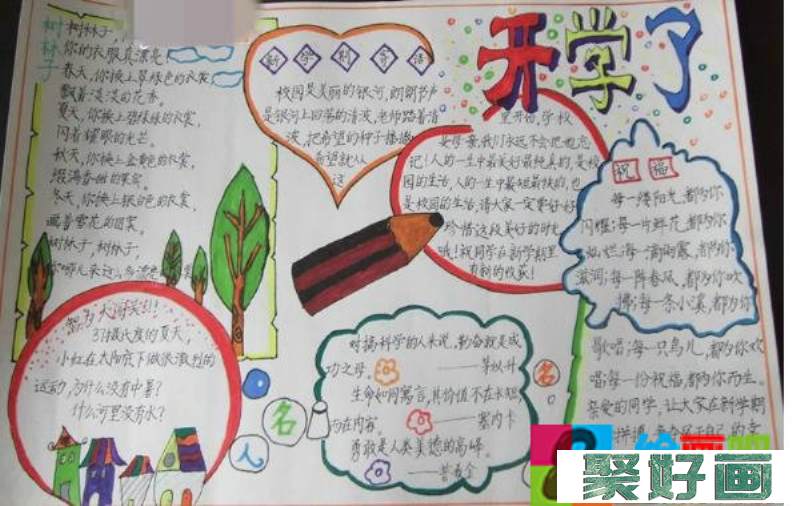 开学了
树林子
树林子,
你的衣服真漂亮
春天,你换上翠绿色的衣裳
飘着淡淡的花香。
夏天,你换上碧绿绿的衣裳,
闪着耀眼的光芒。
秋天,你换上金黄色的衣裳,
缀满香甜的果实。
冬天,你换上银白色的衣裳,
画着雪花的图案。
树林子,树林子,
新学期寄语
校园是美丽的银河,朗朗书声
是银河上回荡的清波,老师踏着清
波,把希望的种子播撒
希望就从
这
里开始,学校
是母亲,我们永远不会把她忘
记!人的一生中最美好最纯真的,是校
园的生活,人的一生中最短最快的,也
是校园的生活,请大家一定要好好
珍惜这段美好的时光
哦!祝同学在新学期里
有新的收获!
祝福
每一缕阳光,都为你
闪耀;每一片鲜花,都为你
灿烂;每一滴雨露,都为你
滋润;每一阵春风,都为你吹
拂;每一条小溪,都为你
歌唱;每一只鸟儿,都为你欢
唱;每一份祝福,都为你而生。
亲爱的同学,让大家在新学期
拼搏,
智力大闯关!!
37摄氏度的夏天,
小红在太阳底下做很激烈的
运动,为什么没有中暑?
什么河里没有水?
名人名
对搞科学的人来说,勤奋就是成
功之母。
——茅以升
生命如同寓言,其价值不在长短,
而在内容。——塞内卡
勇敢是人类美德的高峰。
——普希金
聚好画